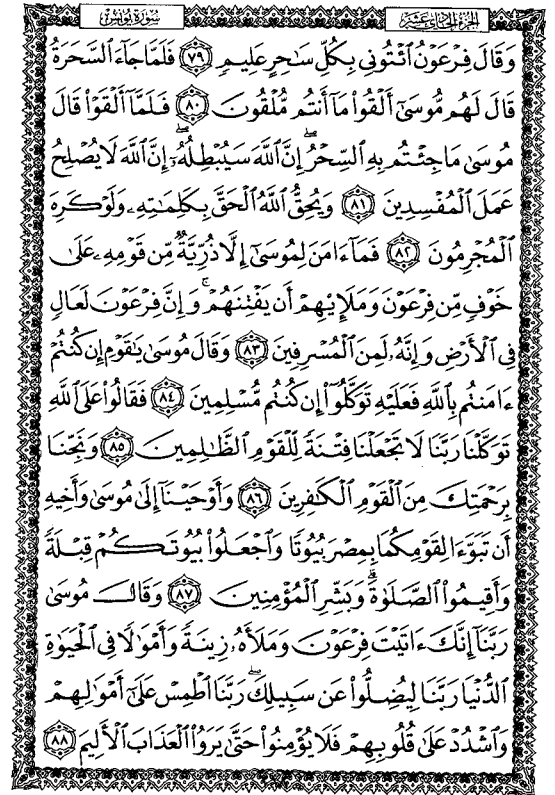 سُورَةُ يُونُسَ الجزء الحادى عشر
وَقَالَ فِرْعَوْنُ ٱئْتُونِي بِكُلِّ سَٰحِرٍ عَلِيمٍ ۝٧٩ فَلَمَّا جَآءَ ٱلسَّحَرَةُ
قَالَ لَهُم مُّوسَىٰٓ أَلْقُوا۟ مَآ أَنتُم مُّلْقُونَ ۝٨٠ فَلَمَّآ أَلْقَوْا۟ قَالَ
مُوسَىٰ مَا جِئْتُم بِهِ ٱلسِّحْرُ ۖ إِنَّ ٱللَّهَ سَيُبْطِلُهُۥٓ ۖ إِنَّ ٱللَّهَ لَا يُصْلِحُ
عَمَلَ ٱلْمُفْسِدِينَ ۝٨١ وَيُحِقُّ ٱللَّهُ ٱلْحَقَّ بِكَلِمَٰتِهِۦ وَلَوْ كَرِهَ
ٱلْمُجْرِمُونَ ۝٨٢ فَمَآ ءَامَنَ لِمُوسَىٰٓ إِلَّا ذُرِّيَّةٌ مِّن قَوْمِهِۦ عَلَىٰ
خَوْفٍ مِّن فِرْعَوْنَ وَمَلَإِي۟هِمْ أَن يَفْتِنَهُمْ ۚ وَإِنَّ فِرْعَوْنَ لَعَالٍ
فِي ٱلْأَرْضِ وَإِنَّهُۥ لَمِنَ ٱلْمُسْرِفِينَ ۝٨٣ وَقَالَ مُوسَىٰ يَٰقَوْمِ إِن كُنتُمْ
ءَامَنتُم بِٱللَّهِ فَعَلَيْهِ تَوَكَّلُوٓا۟ إِن كُنتُم مُّسْلِمِينَ ۝٨٤ فَقَالُوا۟ عَلَى ٱللَّهِ
تَوَكَّلْنَا رَبَّنَا لَا تَجْعَلْنَا فِتْنَةً لِّلْقَوْمِ ٱلظَّٰلِمِينَ ۝٨٥ وَنَجِّنَا
بِرَحْمَتِكَ مِنَ ٱلْقَوْمِ ٱلْكَٰفِرِينَ ۝٨٦ وَأَوْحَيْنَآ إِلَىٰ مُوسَىٰ وَأَخِيهِ
أَن تَبَوَّءَا لِقَوْمِكُمَا بِمِصْرَ بُيُوتًا وَٱجْعَلُوا۟ بُيُوتَكُمْ قِبْلَةً
وَأَقِيمُوا۟ ٱلصَّلَوٰةَ ۗ وَبَشِّرِ ٱلْمُؤْمِنِينَ ۝٨٧ وَقَالَ مُوسَىٰ
رَبَّنَآ إِنَّكَ ءَاتَيْتَ فِرْعَوْنَ وَمَلَأَهُۥ زِينَةً وَأَمْوَٰلًا فِي ٱلْحَيَوٰةِ
ٱلدُّنْيَا رَبَّنَا لِيُضِلُّوا۟ عَن سَبِيلِكَ ۖ رَبَّنَا ٱطْمِسْ عَلَىٰٓ أَمْوَٰلِهِمْ
وَٱشْدُدْ عَلَىٰ قُلُوبِهِمْ فَلَا يُؤْمِنُوا۟ حَتَّىٰ يَرَوُا۟ ٱلْعَذَابَ ٱلْأَلِيمَ ۝٨٨